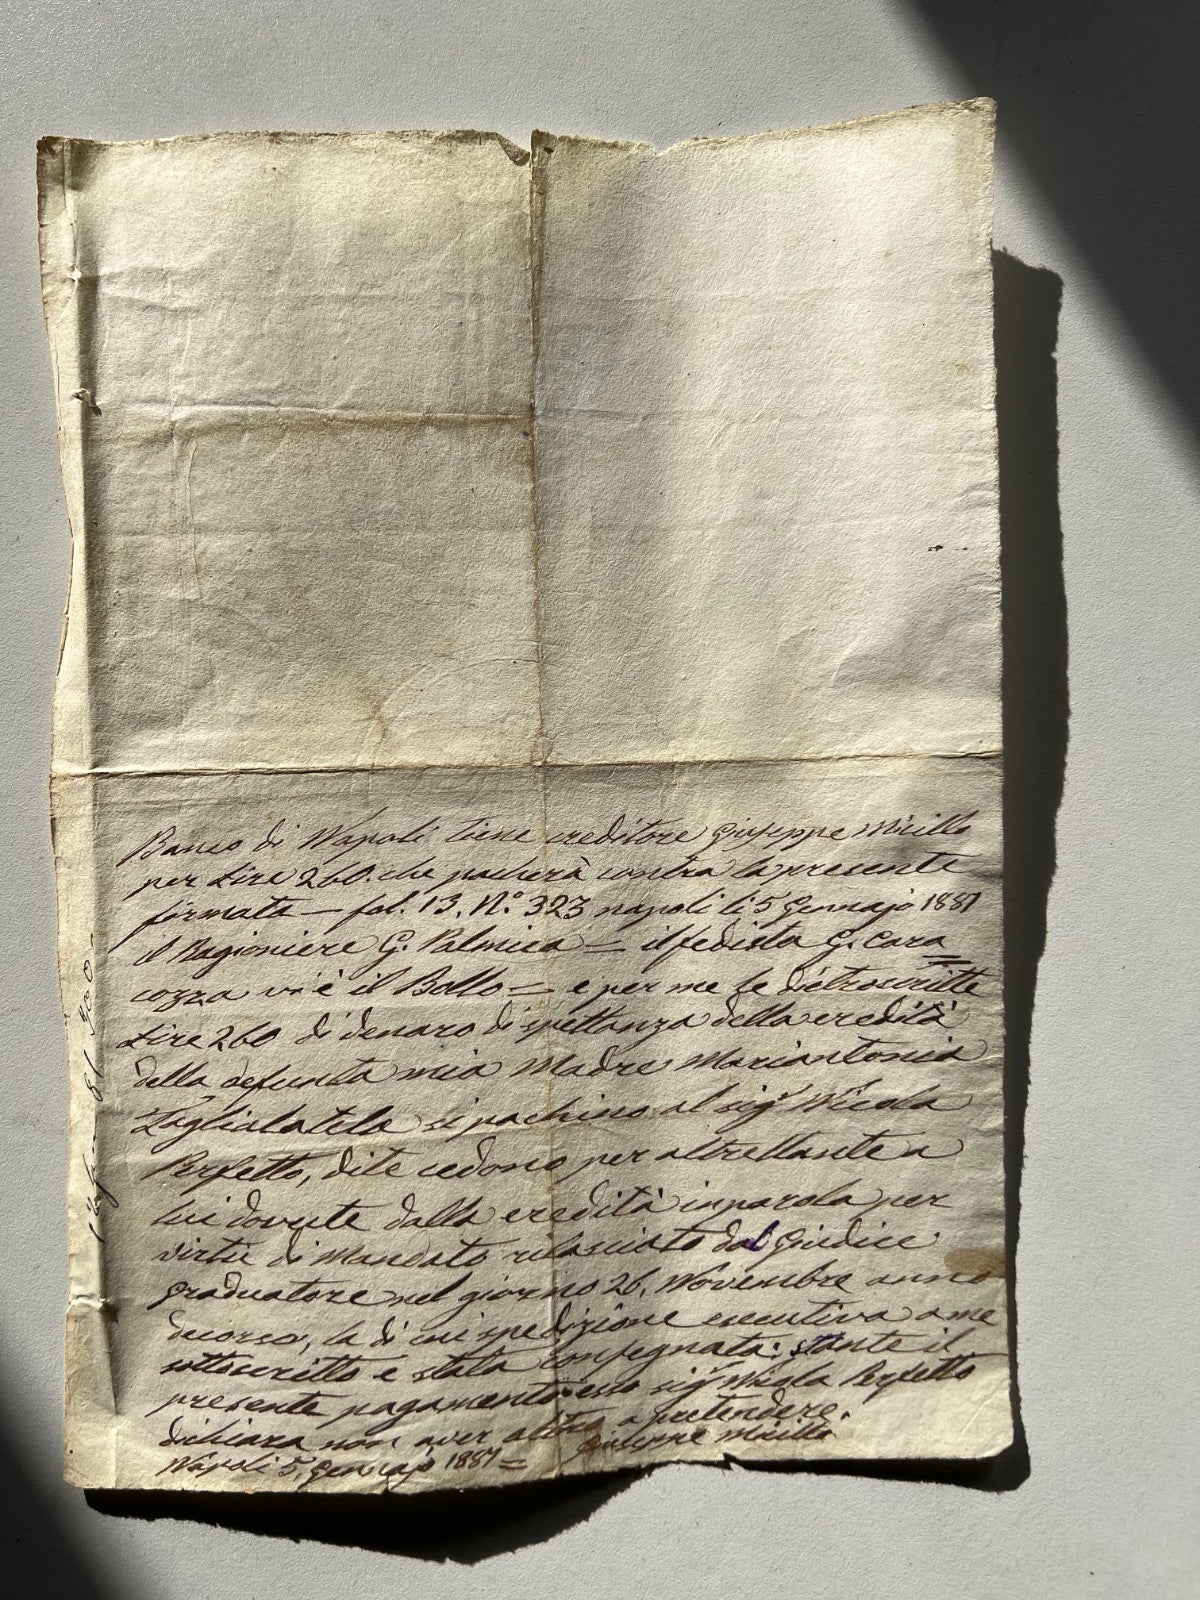 Banco di Napoli tiene creditore Giuseppe Mirillo
per Lire 260. che pacherà contro la presente
firmata — fol. 13, N.º 323 napoli li 5 Gennajo 1887
il Ragioniere G. Palmiea = il fedista G. Cara
cozza vi è il Bollo = e per me le dietroscritte
Lire 260 di denaro di spettanza della eredità
della defunta mia Madre Mariantonia
Tagliolatela si pachino al sigr Nicola
Perfetto, dite cedono per altrettante a
lui dovute dalla eredità in parola per
virtù di Mandato rilasciato dal Giudice
graduatore nel giorno 26, Novembre anno
decorso, la di cui spedizione esecutiva a me
sottoscritto e stata consegnata: stante il
presente pagamento esso sigr Nicola Perfetto
dichiara non aver altro a pretendere.
Napoli 5, Gennajo 1887 = Giuseppe Mirillo